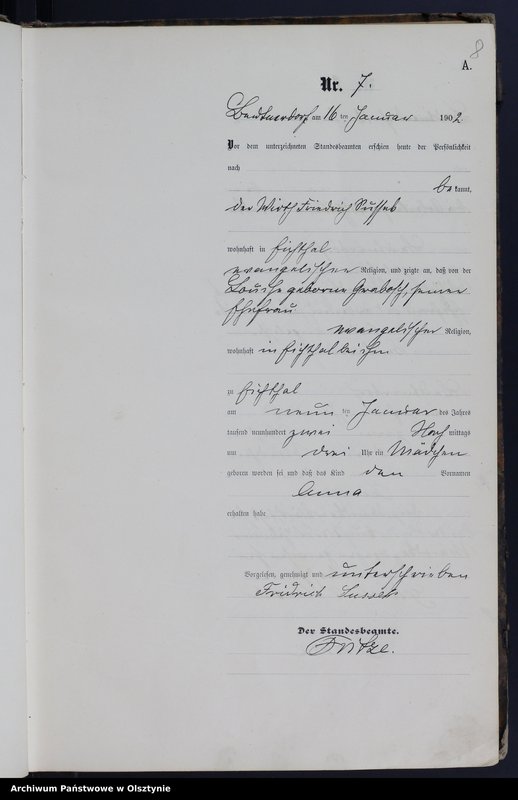 8
A.
Nr. 7.
Beutnerdorf am 16 ten Januar 1902
Vor dem unterzeichneten Standesbeamten erschien heute der Persönlichkeit
nach
be kannt,
der Wirth Friedrich
wohnhaft in Fichthal
evangelischer Religion, und zeigte an, daß von der
Louise geborne Grabosch, seiner
Ehefrau
evangelischer Religion,
wohnhaft in Fichthal bei ihm
zu Fichthal
am neun ten Januar des Jahres
tausend neunhundert zwei Nach mittags
um drei Uhr ein Mädchen
geboren worden sei und daß das Kind den Vornamen
Anna
erhalten habe
Vorgelesen, genehmigt und unterschrieben
Fridrich
Der Standesbeamte.
Fritze.
Archiwum Państwowe w Olsztynie